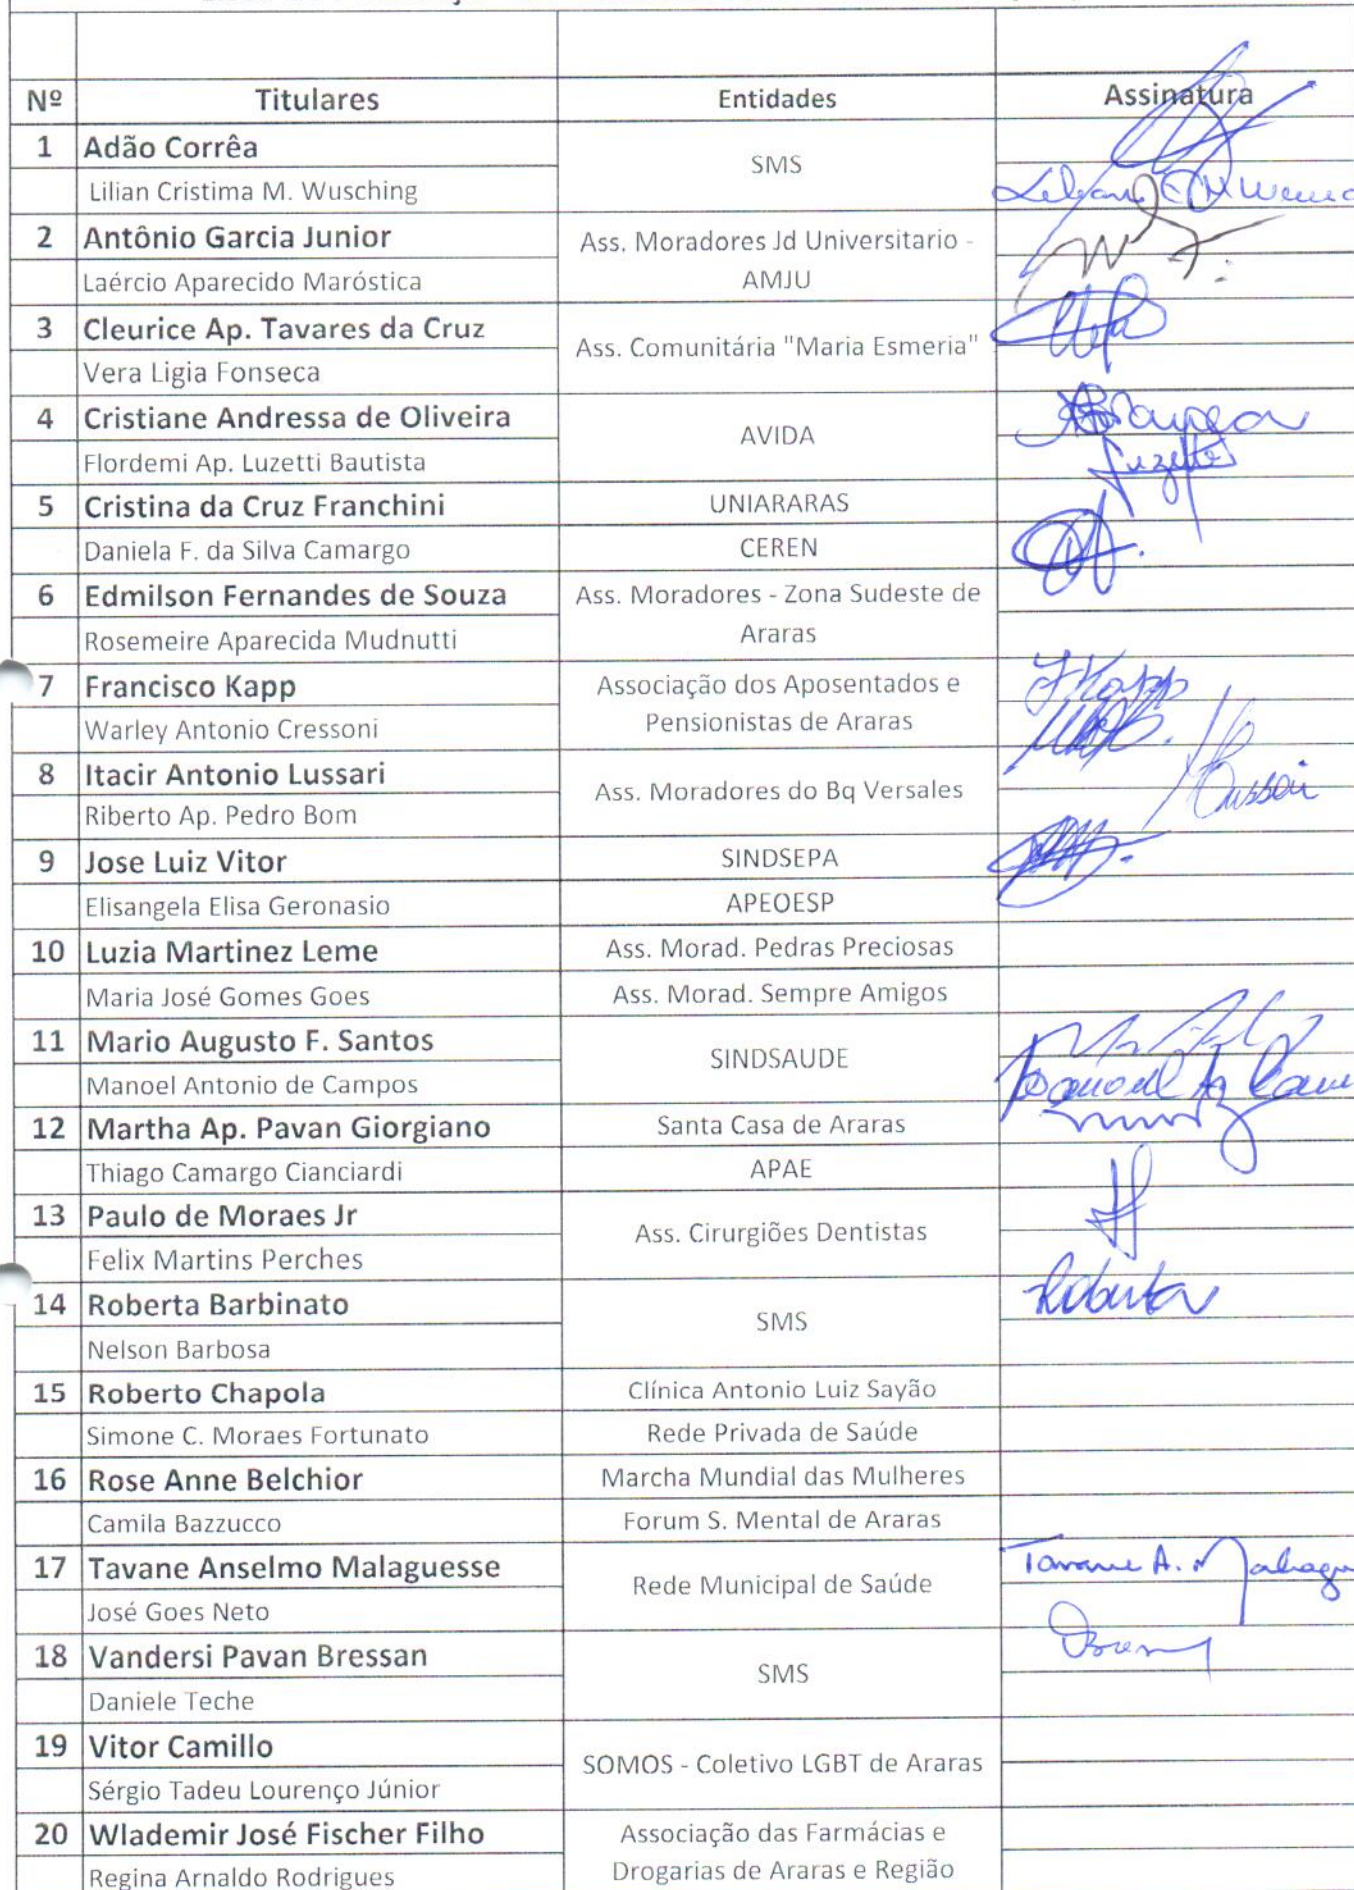 Nº Titulares Entidades Assinatura
1 Adão Corrêa
SMS
Lilian Cristima M. Wusching
2 Antônio Garcia Junior
Ass. Moradores Jd Universitario -
AMJU
Laércio Aparecido Maróstica
3 Cleurice Ap. Tavares da Cruz
Ass. Comunitária "Maria Esmeria"
Vera Ligia Fonseca
4 Cristiane Andressa de Oliveira
AVIDA
Flordemi Ap. Luzetti Bautista
5 Cristina da Cruz Franchini UNIARARAS
Daniela F. da Silva Camargo CEREN
6 Edmilson Fernandes de Souza
Ass. Moradores - Zona Sudeste de
Araras
Rosemeire Aparecida Mudnutti
7 Francisco Kapp
Associação dos Aposentados e
Pensionistas de Araras
FKapp
Warley Antonio Cressoni
8 Itacir Antonio Lussari
Ass. Moradores do Bq Versales
Riberto Ap. Pedro Bom
9 Jose Luiz Vitor SINDSEPA
Elisangela Elisa Geronasio APEOESP
10 Luzia Martinez Leme Ass. Morad. Pedras Preciosas
Maria José Gomes Goes Ass. Morad. Sempre Amigos
11 Mario Augusto F. Santos
SINDSAUDE
Manoel Antonio de Campos
12 Martha Ap. Pavan Giorgiano Santa Casa de Araras
Thiago Camargo Cianciardi APAE
13 Paulo de Moraes Jr
Ass. Cirurgiões Dentistas
Felix Martins Perches
14 Roberta Barbinato Roberta
SMS
Nelson Barbosa
15 Roberto Chapola Clínica Antonio Luiz Sayão
Simone C. Moraes Fortunato Rede Privada de Saúde
16 Rose Anne Belchior Marcha Mundial das Mulheres
Camila Bazzucco Forum S. Mental de Araras
17 Tavane Anselmo Malaguesse Tavane A.
Rede Municipal de Saúde
José Goes Neto
18 Vandersi Pavan Bressan
SMS
Daniele Teche
19 Vitor Camillo
SOMOS - Coletivo LGBT de Araras
Sérgio Tadeu Lourenço Júnior
20 Wlademir José Fischer Filho
Associação das Farmácias e
Drogarias de Araras e Região
Regina Arnaldo Rodrigues